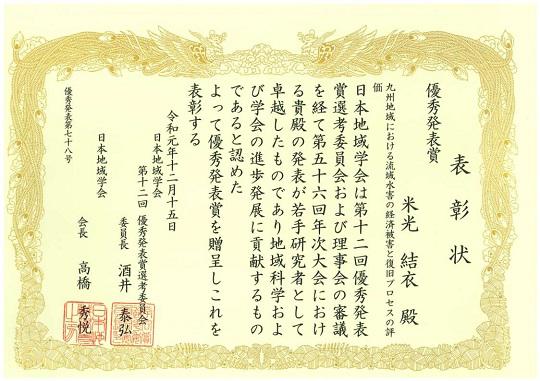 表彰状
優秀発表賞
米光 結衣 殿
九州地域における流域水害の経済被害と復旧プロセスの評
価
日本地域学会は第十二回優秀発表
賞選考委員会および理事会の審議
を経て第五十六回年次大会におけ
る貴殿の発表が若手研究者として
卓越したものであり地域科学およ
び学会の進歩発展に貢献するもの
であると認めた
よって優秀発表賞を贈呈しこれを
表彰する
令和元年十二月十五日
日本地域学会
第十二回 優秀発表賞選考委員会
委員長 酒井 泰弘
日本地域学会
会長 高橋 秀悦
優秀発表第七十八号